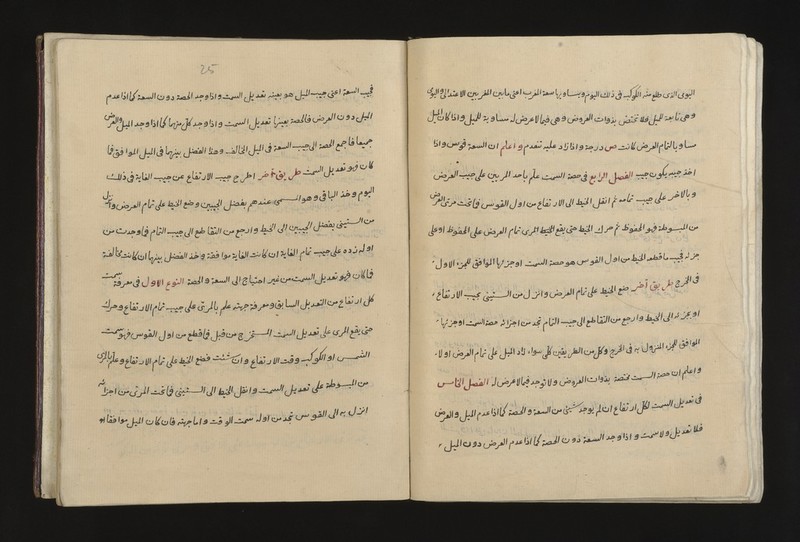 اليوم الذى طلع منه الكوكب فى ذلك اليوم ويساويها سعة المغرب اعنى ما بين المغربين الاعتدالى واليومى
وهى تابعة للميل فلا تختص بذوات العروض وهى فيما لا عرض له مساوية للميل واذا كان الميل
مساويا لتمام العرض كانت ص درجة واذا زاد عليه تنعدم واعلم ان السعة قوس واذا
اخذ جيبه يكون جيب الفصل الرابع فى حصة السمت علّم باحد المريين على جيب العرض
وبالاخر على جيب تمامه ثم انقل الخيط الى الارتفاع من اول القوس فما تحت مرى العرض
من المبسوطة فهو المحفوظ ثم حرك الخيط حتى يقع الخيط المرى تمام العرض على المحفوظ او على
جزئه فجيب ما قطعه الخيط من اول القوس هو حصة السمت او جزئها الموافق للجزء الاول
فى المخرج طريق اخر ضع الخيط على تمام العرض وانزل من الستينى بجيب الارتفاع
او بجزئه الى الخيط وارجع من التقاطع الى جيب التمام تجد من اجزائه حصة السمت او جزئها
الموافق للجزء المنزول به فى المخرج وكل من الطريقين كلى سواء زاد الميل على تمام العرض اولا
واعلم ان حصة السمت مختصة بذوات العروض ولا توجد فيما لا عرض له الفصل الخامس
فى تعديل السمت لكل ارتفاع ان لم يوجد شئ من السعة والحصة كما اذا عدم الميل والعرض
فلا تعديل ولا سمت واذا وجد السعة دون الحصة كما اذا عدم العرض دون الميل
25
فجيب السعة اعنى جيب الميل هو بعينه تعديل السمت واذا وجد الحصة دون السعة كما اذا عدم
الميل دون العرض فالحصة بعينها تعديل السمت واذا وجد كل منهما كما اذا وجد الميل والعرض
جميعا فاجمع الحصة الى جيب السعة فى الميل المخالف وخذ الفضل بينهما فى الميل الموافق فما
كان فهو تعديل السمت طريق اخر اطرح جيب الارتفاع من جيب الغاية فى ذلك
اليوم وخذ الباقى وهو المسمى عندهم بفضل الجيبين وضع الخيط على تمام العرض وانزل
من الستينى بفضل الجيبين الى الخيط وارجع من التقاطع الى جيب التمام فما وجدت من
اوله زده على جيب تمام الغاية ان كانت الغاية موافقة وخذ الفضل بينهما ان كانت مخالفة
فما كان فهو تعديل السمت من غير احتياج الى السعة والحصة النوع الاول فى معرفة سمت
كل ارتفاع من التعديل السابق ومعرفة جهته علّم بالمرى على جيب تمام الارتفاع وحرك
حتى يقع المرى على تعديل السمت المستخرج من قبل فما قطع من اول القوس فهو سمت
الشمس او الكوكب وقت الارتفاع وان شئت فضع الخيط على تمام الارتفاع وعلّم بالمرى
من المبسوطة على تعديل السمت وانقل الخيط الى الستينى فما تحت المرى من اجزائه
انزل به الى القوس تجد من اوله سمت الوقت واما جهته فان كان الميل موافقا او